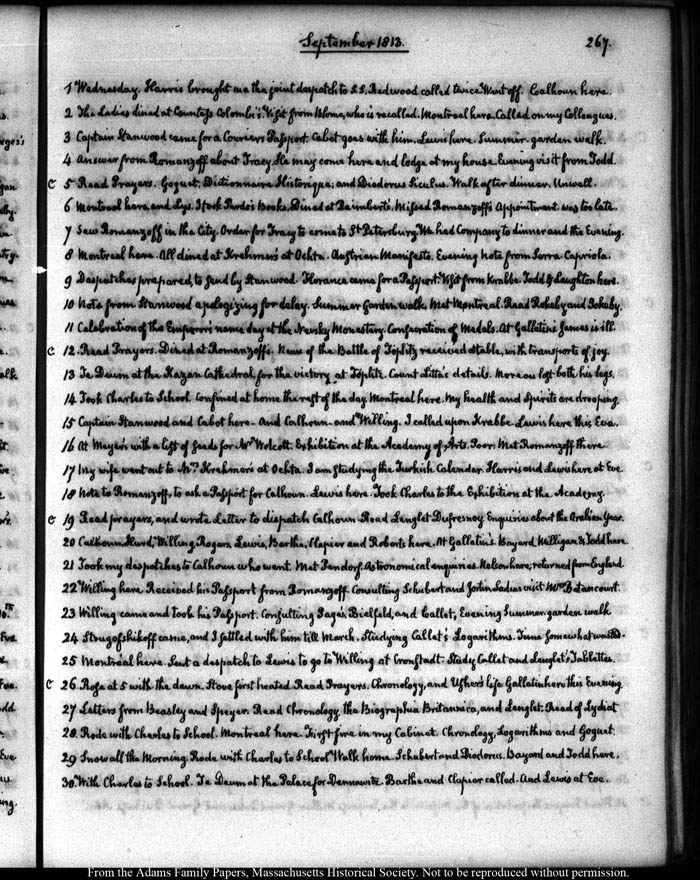 September 1813.
267.
1 Wednesday. Harris brought me the joint despatch to S.S. Redwood called twice Went off. Calhoun here.
2 The Ladies dined at Countess Colombi's. Visit from Blome, who is recalled. Montreal here. Called on my Colleagues.
3 Captain Stanwood came for a Couriers Passport. Cabot goes with him. Lewis here. Summer-garden walk.
4 Answer from Romanzoff about Tracy. He may come here and lodge at my house. Evening visit from Todd.
C 5 Read Prayers. Goguet, Dictionnaire Historique; and Diodorus Siculus. Walk after dinner. Unwell.
6 Montreal here and Lys. I took Pardo's Books. Dined at Raimbert's. Missed Romanzoff's Appointment. was too late.
7 Saw Romanzoff in the City. Order for Tracy to come to St Petersburg. We had Company to dinner and the Evening.
8 Montreal here. All dined at Krehmer's at Ochta. Austrian Manifesto. Evening note from Serra Capriola.
9 Despatches prepared, to send by Stanwood. Florance came for a Passport. Visit from Krabbe. Todd & Laughton here.
10 Note from Stanwood apologizing for delay. Summer Garden walk. Met Montreal. Read Rokeby and Jokeby.
11 Celebration of the Emperor's name day at the Newsky Monastery. Consecration of Medals. At Gallatin's James is ill.
C 12. Read Prayers. Dined at Romanzoff's. News of the Battle of Töplitz received at table, with transports of joy.
13 Te Deum at the Kazan Cathedral, for the victory at Töplitz. Count Litta's details. Moreau lost both his legs.
14 Took Charles to School. Confined at home the rest of the day. Montreal here. My health and Spirits are drooping.
15 Captain Stanwood and Cabot here. And Calhoun and Willing. I called upon Krabbe. Lewis here this Eve.
16 At Meyer's with a list of seeds for Mr Wolcott. Exhibition at the Academy of Arts. Poor. Met Romanzoff there
17 My wife went out to Mrs Krehmer's at Ochta. I am studying the Turkish Calendar. Harris and Lewis here at Eve.
18 Note to Romanzoff, to ask a Passport for Calhoun. Lewis here. Took Charles to the Exhibition at the Academy.
C 19 Read prayers, and wrote Letter to dispatch Calhoun. Read Lenglet Dufresnoy. Enquiries about the Arabian Year.
20 Calhoun, Hurd, Willing, Rogers, Lewis, Barthe, Clapier and Roberts here. At Gallatin's. Bayard Milligan & Todd here
21 Took my despatches to Calhoun who went. Met Pendorf. Astronomical enquiries. Nelson here; returned from England.
22 Willing here. Received his Passport from Romanzoff. Consulting Schubert and Jortin. Ladies visit Mme Betancourt.
23 Willing came and took his Passport. Consulting Sage's, Bielfeld, and Callet, Evening Summer garden walk
24 Strugofshikoff came, and I settled with him till March. Studying Callet's Logarithms. Time somewhat wasted.
25 Montreal here. Sent a despatch to Lewis to go to Willing at Cronstadt. Study Callet and Lenglet's Tablettes.
C 26. Rose at 5 with the dawn. Stove first heated. Read Prayers. Chronology, and Usher's life. Gallatin here this Evening
27 Letters from Beasley and Speyer. Read Chronology, the Biographia Britannica, and Lenglet. Read of Lydiat
28. Rode with Charles to School. Montreal here. First fire in my Cabinet. Chronology, Logarithms and Goguet.
29 Snow all the Morning. Rode with Charles to School. Walk home. Schubert and Diodorus. Bayard and Todd here.
30. With Charles to School. Te Deum at the Palace for Dennewitz. Barthe and Clapier called. And Lewis at Eve.
From the Adams Family Papers, Massachusetts Historical Society. Not to be reproduced without permission.